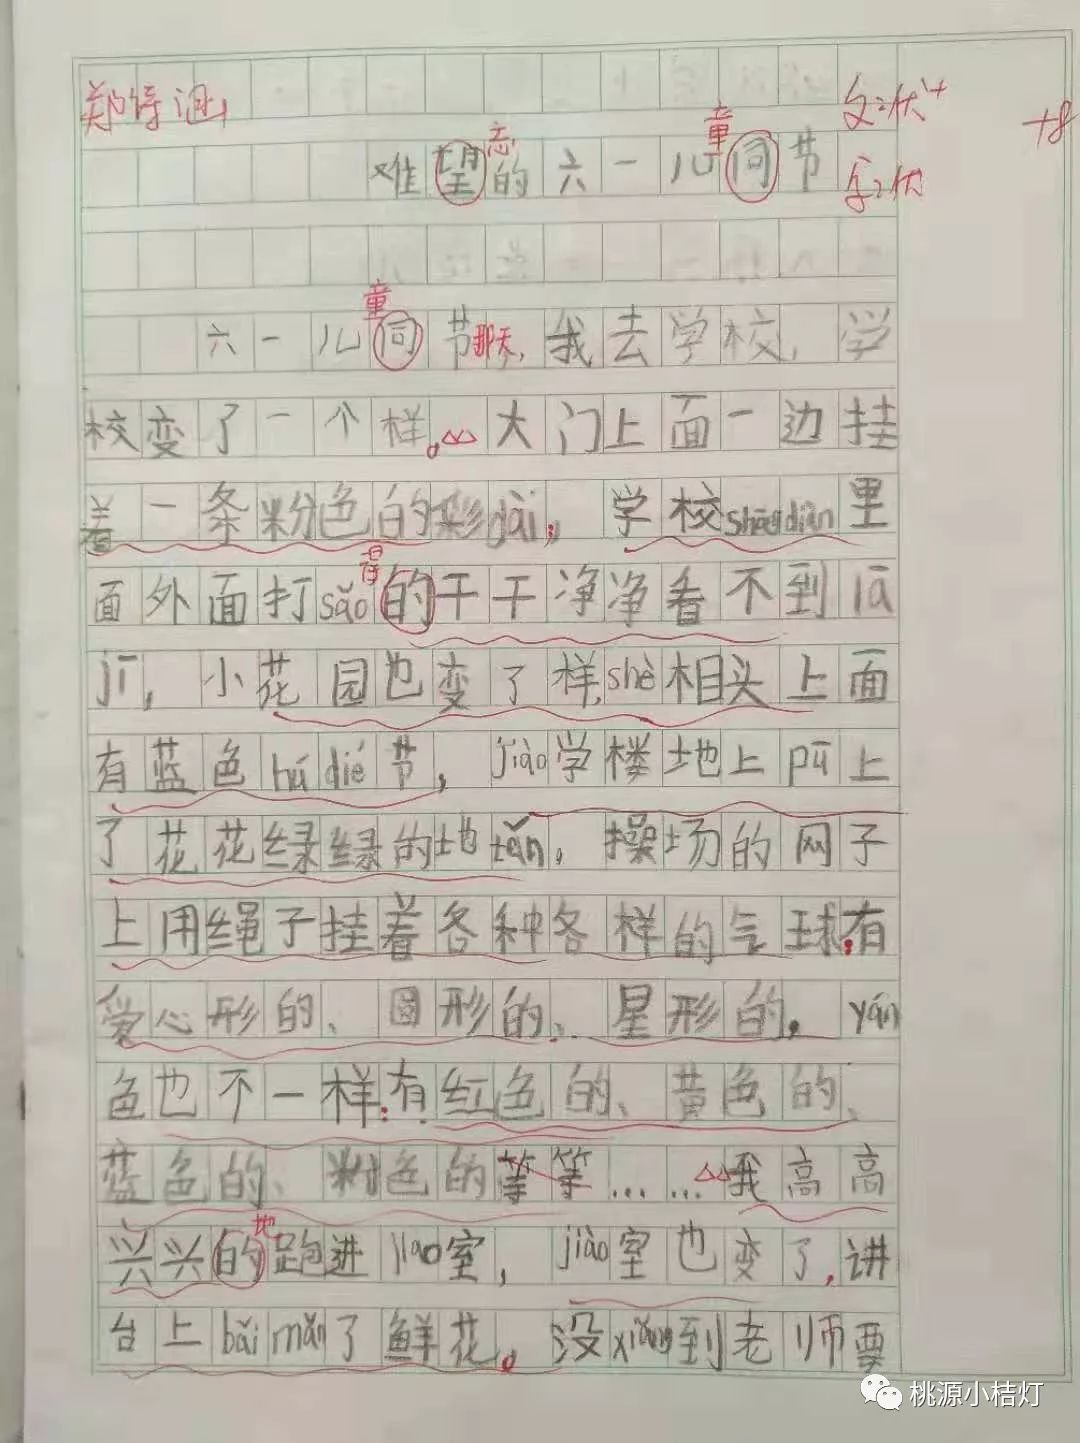 郑诗涵
文:优+ +8
字:优
难望的六一儿同节
忘 童
六一儿同节那天,我去学校,学
童
校变了一个样。大门上面一边挂
着一条粉色的彩dài,学校shāngdiàn里
面外面打sǎo的干干净净看不到lā
得
jī,小花园也变了样,shè相头上面
有蓝色húdié节,jiào学楼地上pū上
了花花绿绿的地tǎn,操场的网子
上用绳子挂着各种各样的气球,有
爱心形的、圆形的、星形的,yán
色也不一样:有红色的、黄色的、
蓝色的、粉色的等等……我高高
兴兴的跑进jiào室,jiào室也变了,讲
地
台上bǎi mǎn了鲜花。没xiǎng到老师要
桃源小桔灯